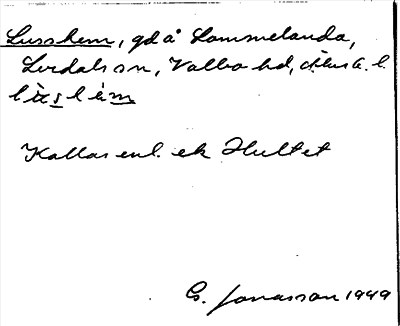 Lusshem, gd å Lommelanda,
Lerdals sn, Valbo hd,
Kallas enl. ek Hultet
G. Jonasson 1949